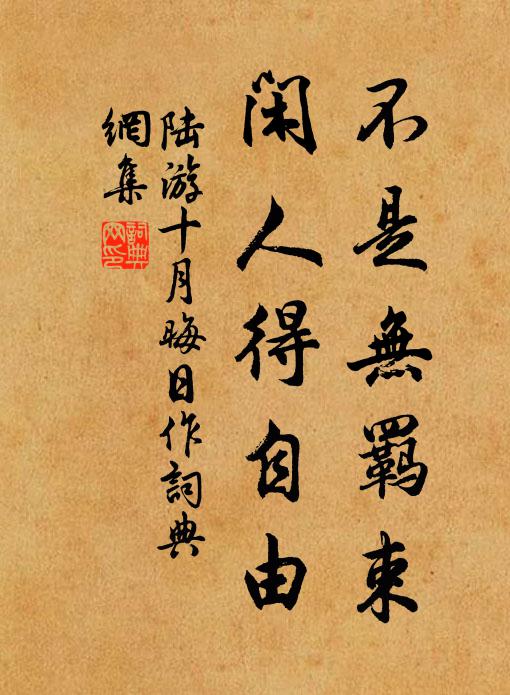 不是無羈束
閑人得自由
陆游十月晦日作詞典
網集
詞典網印